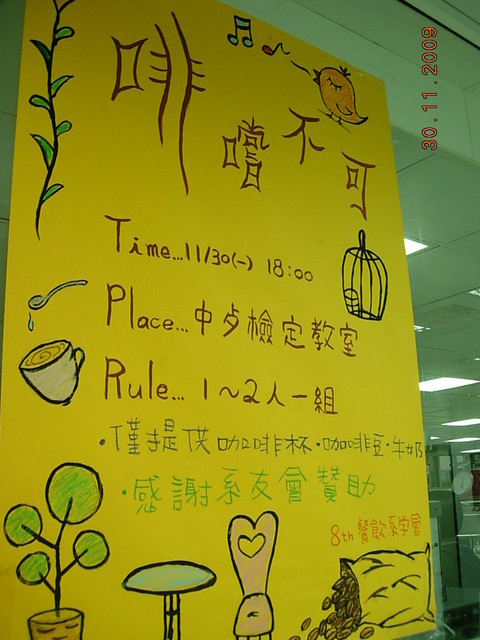 30.11.2009
啡嚐不可
Time...11/30(一) 18:00
Place...中歺檢定教室
Rule... 1～2人一組
·僅提供咖啡杯·咖啡豆·牛奶
·感謝系友會贊助
8th 餐飲系學會